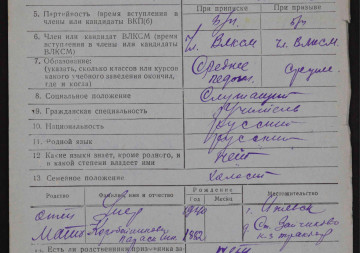 При приписке При призыве
5. Партейность (время вступления в б/п б/п
члены или кандидаты ВКП(б)
6. Член или кандидат ВЛКСМ (время Чл. ВЛКСМ чл. ВЛКСМ
вступления в члены или кандидаты
ВЛКСМ)
7. Образование: Среднее
(указать, сколько классов или курсов педаг.
какого учебного заведения окончил,
где и когда)
8. Социальное положение Служащий
9. Гражданская специальность Учитель
10. Национальность русский
11. Родной язык русский
12. Какие языки знает, кроме родного, и нет
в какой степени владеет ими
13. Семейное положение холост
Родство Фамилия, имя и отчество РОЖДЕНИЕ Местожительство
Год Месяц
отец умер
Мать 1882
14. Есть ли родственники призывника за нет